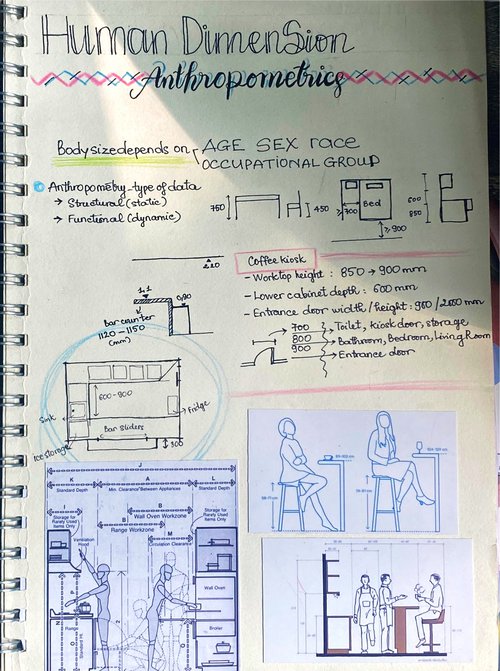 Human Dimension
Anthropometrics
Body size depends on
AGE SEX race
OCCUPATIONAL GROUP
Anthropometry - type of data
→ Structural (static)
→ Functional (dynamic)
750
450
700
Bed
≥ 900
600
850
2.20
Coffee kiosk
- Worktop height : 850 → 900 mm
- Lower cabinet depth : 600 mm
- Entrance door width / height : 960 / 2050 mm
700 → Toilet, kiosk door, storage
800 → Bathroom, Bedroom, Living Room
900 → Entrance door
1.1
0.90
Bar counter
1120 - 1150
(mm)
600-900
Sink
Fridge
Bar Sliders
Ice storage
300
J
K
A
L
Standard Depth
Min. Clearance Between Appliances
Standard Depth
Storage for Rarely Used Items Only
B
Wall Oven Workzone
B
Range Workzone
M
Circulation Clearance
Storage for Rarely Used Items Only
Ventilation Hood
Wall Oven
Range
Broiler